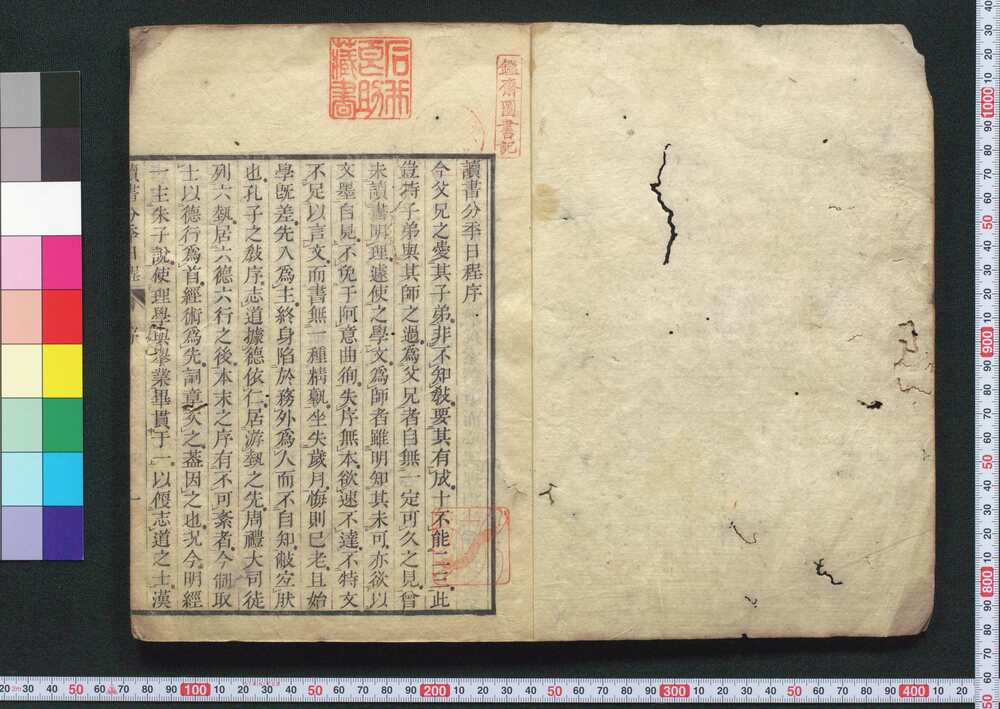 讀書分年日程序
今父兄之愛其子弟非不知敎要其有成十不能二三此
豈特子弟與其師之過爲父兄者自無一定可久之見曾
未讀書明理遽使之學文爲師者雖明知其未可亦欲以
文墨自見不免于阿意曲徇失序無本欲速不達不特文
不足以言文而書無一種精熟坐失歲月悔則已老且始
學旣差先入爲主終身陷於務外爲人而不自知弊宜然
也孔子之敎序志道據德依仁居游藝之先周禮大司徒
列六藝居六德六行之後本末之序有不可紊者今制取
士以德行爲首經術爲先詞章次之蓋因之也况今明經
一主朱子說使理學與舉業畢貫于一以便志道之士漢
讀書分年日程
序
一
鑑齋圖書記
藏書